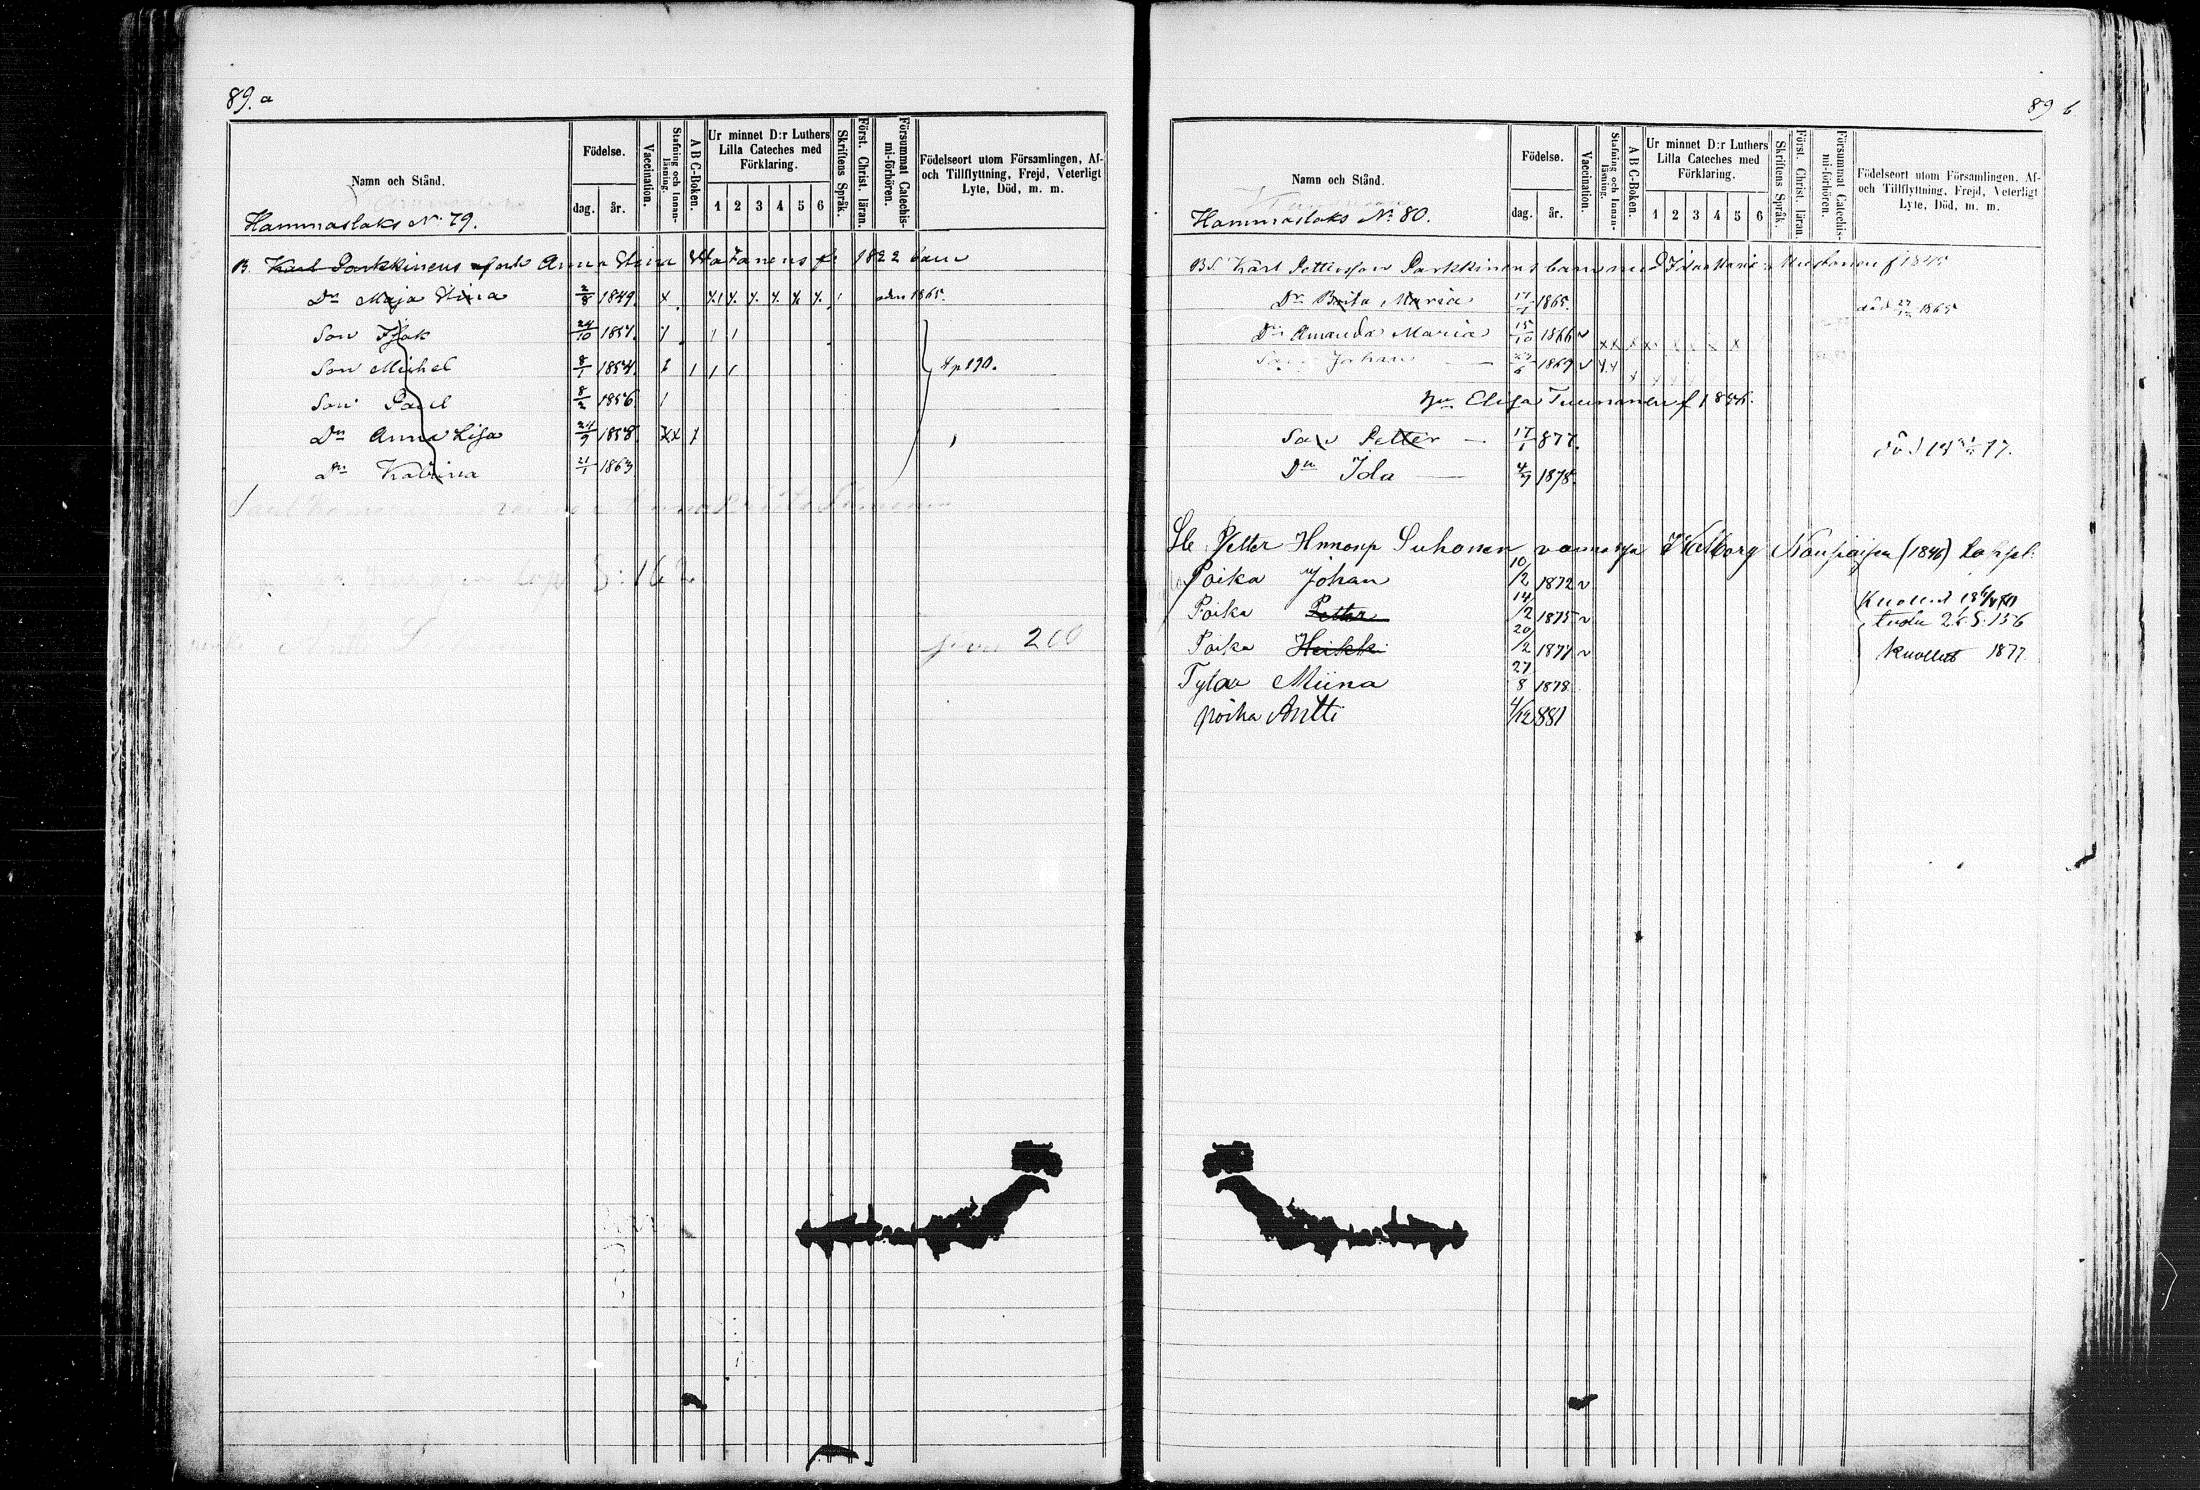 89. a
Namn och Stånd.
Födelse.
dag. år.
Vaccination.
Stafning och Innanläsning.
A B C-Boken.
Ur minnet D:r Luthers Lilla Cateches med Förklaring.
1 2 3 4 5 6
Skriftens Språk.
Först. Christ. läran.
Försummat Catechismi-förhören.
Födelseort utom Församlingen, Af- och Tillflyttning, Frejd, Veterligt Lyte, Död, m. m.
Hammaslaks No 79.
B. Karl Parkkinens och Anna Stina Hatanens f. 1822 barn
Dr Maja Stina 2/8 1849. 1865.
Son Isak 24/10 1851.
Son Michel 8/1 1854. 190.
Son Paul 8/2 1856.
Dr Anna Lisa 24/9 1858.
Dr Katrina 21/1 1863
S: 162
200
89 b.
Namn och Stånd.
Födelse.
dag. år.
Vaccination.
Stafning och Innanläsning.
A B C-Boken.
Ur minnet D:r Luthers Lilla Cateches med Förklaring.
1 2 3 4 5 6
Skriftens Språk.
Först. Christ. läran.
Försummat Catechismi-förhören.
Födelseort utom Församlingen, Af- och Tillflyttning, Frejd, Veterligt Lyte, Död, m. m.
Hammaslaks No. 80.
BS. Karl Pettersson Parkkinens barn med Ida Maria Mustonen f 1845
Dr Brita Maria 1865. död 1865
Dr Amanda Maria 15/10 1866
Son Johan 1869
Elisa Tuunanen f 1856.
Son Petter 17/1 877. död 77.
Dr Ida 4/7 1878.
Petter Suhonen (1846) lapset:
Poika Johan 10/2 1872
Poika Petter 14/2 1875
Poika Heikki 20/2 1877 Kuollut 1877
Tytär Miina 27 8 1878.
poika Antti 4/12 881